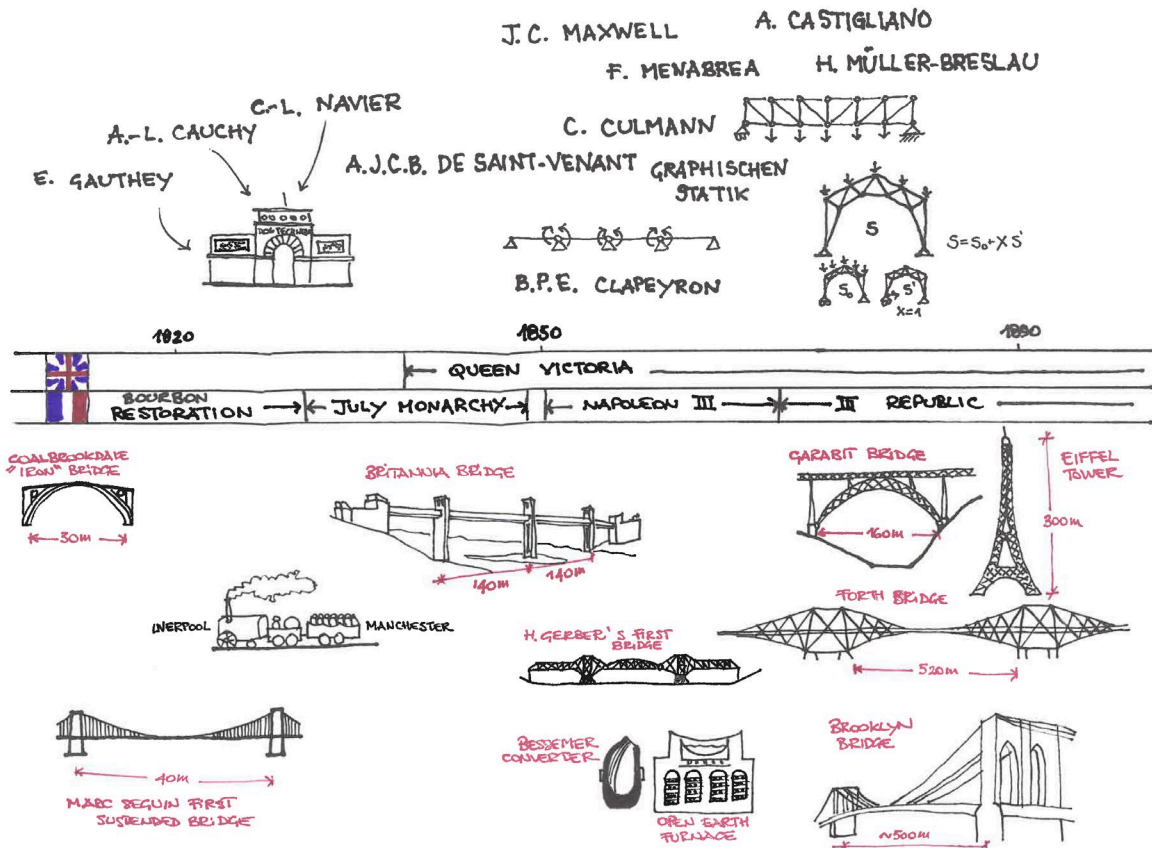 J.C. MAXWELL
A. CASTIGLIANO
F. MENABREA
H. MÜLLER-BRESLAU
C.-L. NAVIER
A.-L. CAUCHY
C. CULMANN
E. GAUTHEY
A.J.C.B. DE SAINT-VENANT
GRAPHISCHEN
STATIK
S
S=S₀+XS'
S₀
S'
X=1
B.P.E. CLAPEYRON
1820
1850
1890
QUEEN VICTORIA
BOURBON
RESTORATION
JULY MONARCHY
NAPOLEON III
III REPUBLIC
COALBROOKDALE
"IRON" BRIDGE
30m
BRITANNIA BRIDGE
140m
140m
GARABIT BRIDGE
160m
EIFFEL
TOWER
300m
LIVERPOOL
MANCHESTER
FORTH BRIDGE
520m
H. GERBER'S FIRST
BRIDGE
40m
MARC SEGUIN FIRST
SUSPENDED BRIDGE
BESSEMER
CONVERTER
OPEN EARTH
FURNACE
BROOKLYN
BRIDGE
~500m